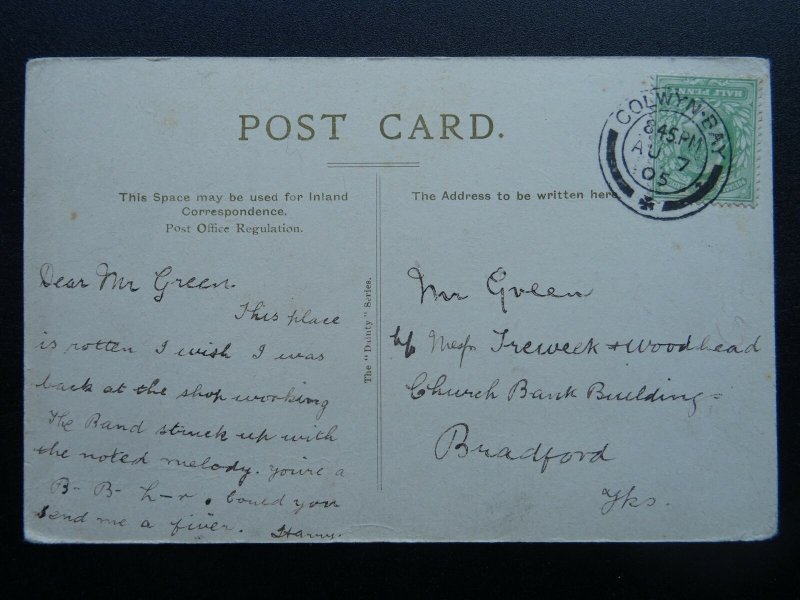 POST CARD.
This Space may be used for Inland
Correspondence.
Post Office Regulation.
The Address to be written here
HALF PENNY
COLWYN-BAY
8.45.PM
AU 7
05
The "Dainty" Series.
Dear Mr Green.
This place
is rotten I wish I was
back at the shop working
The Band struck up with
the noted melody. you're a
B- B- h-r. Could you
send me a fiver. Harry.
Mr Green
c/o Messrs Treweek & Woodhead
Church Bank Buildings
Bradford
Yks.